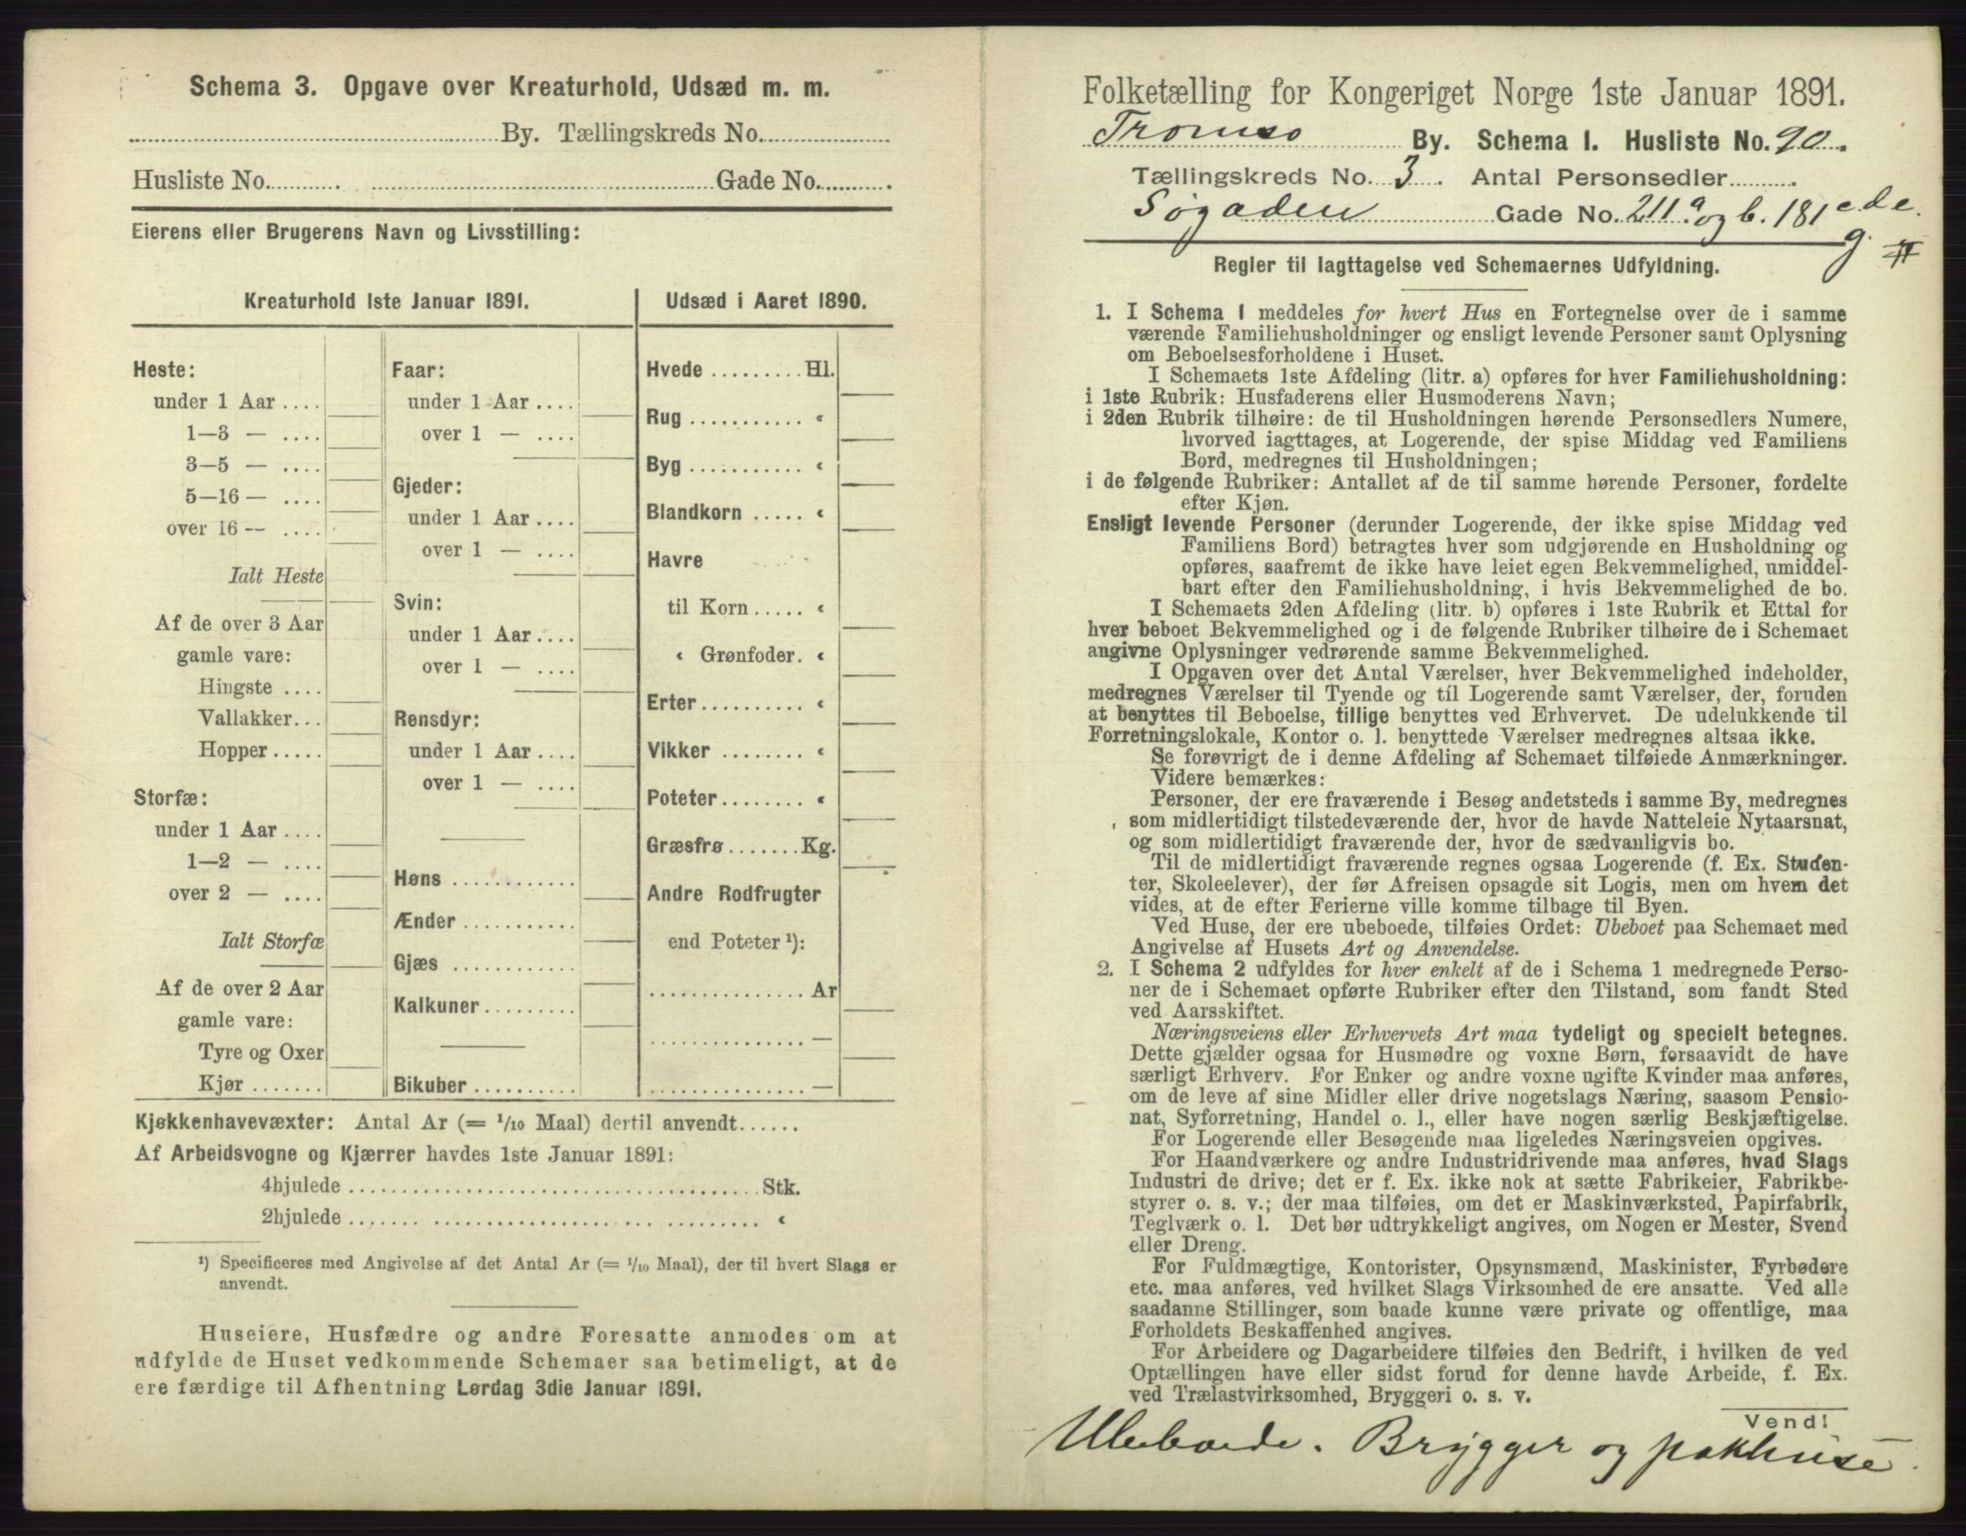 Schema 3. Opgave over Kreaturhold, Udsæd m. m.
By. Tællingskreds No.
Husliste No. Gade No.
Eierens eller Brugerens Navn og Livsstilling:
Kreaturhold 1ste Januar 1891.
Heste:
under 1 Aar ....
1—3 — ....
3—5 — ....
5—16 — ....
over 16 — ....
Ialt Heste
Af de over 3 Aar
gamle vare:
Hingste ....
Vallakker...
Hopper .....
Storfæ:
under 1 Aar ....
1—2 — ....
over 2 — ....
Ialt Storfæ
Af de over 2 Aar
gamle vare:
Tyre og Oxer
Kjør .......
Faar:
under 1 Aar ....
over 1 — ....
Gjeder:
under 1 Aar ....
over 1 — ....
Svin:
under 1 Aar ....
over 1 — ....
Rensdyr:
under 1 Aar ....
over 1 — ....
Høns ............
Ænder ...........
Gjæs ............
Kalkuner .........
Bikuber ..........
Udsæd i Aaret 1890.
Hvede ......... Hl.
Rug ........... «
Byg ........... «
Blandkorn ..... «
Havre
til Korn ..... «
« Grønfoder. «
Erter .......... «
Vikker ......... «
Poteter ........ «
Græsfrø ....... Kg.
Andre Rodfrugter
end Poteter ¹):
............... Ar
............... —
............... —
Kjøkkenhavevæxter: Antal Ar (= 1/10 Maal) dertil anvendt......
Af Arbeidsvogne og Kjærrer havdes 1ste Januar 1891:
4hjulede ........................................ Stk.
2hjulede ........................................ «
¹) Specificeres med Angivelse af det Antal Ar (= 1/10 Maal), der til hvert Slags er
anvendt.
Huseiere, Husfædre og andre Foresatte anmodes om at
udfylde de Huset vedkommende Schemaer saa betimeligt, at de
ere færdige til Afhentning Lørdag 3die Januar 1891.
Folketælling for Kongeriget Norge 1ste Januar 1891.
Tromsø By. Schema I. Husliste No. 90.
Tællingskreds No. 3. Antal Personsedler
Søgaden Gade No. 211 a og b. 181 c.d.e.
g. #
Regler til Iagttagelse ved Schemaernes Udfyldning.
1. I Schema 1 meddeles for hvert Hus en Fortegnelse over de i samme
værende Familiehusholdninger og ensligt levende Personer samt Oplysning
om Beboelsesforholdene i Huset.
I Schemaets 1ste Afdeling (litr. a) opføres for hver Familiehusholdning:
i 1ste Rubrik: Husfaderens eller Husmoderens Navn;
i 2den Rubrik tilhøire: de til Husholdningen hørende Personsedlers Numere,
hvorved iagttages, at Logerende, der spise Middag ved Familiens
Bord, medregnes til Husholdningen;
i de følgende Rubriker: Antallet af de til samme hørende Personer, fordelte
efter Kjøn.
Ensligt levende Personer (derunder Logerende, der ikke spise Middag ved
Familiens Bord) betragtes hver som udgjørende en Husholdning og
opføres, saafremt de ikke have leiet egen Bekvemmelighed, umiddel-
bart efter den Familiehusholdning, i hvis Bekvemmelighed de bo.
I Schemaets 2den Afdeling (litr. b) opføres i 1ste Rubrik et Ettal for
hver beboet Bekvemmelighed og i de følgende Rubriker tilhøire de i Schemaet
angivne Oplysninger vedrørende samme Bekvemmelighed.
I Opgaven over det Antal Værelser, hver Bekvemmelighed indeholder,
medregnes Værelser til Tyende og til Logerende samt Værelser, der, foruden
at benyttes til Beboelse, tillige benyttes ved Erhvervet. De udelukkende til
Forretningslokale, Kontor o. l. benyttede Værelser medregnes altsaa ikke.
Se forøvrigt de i denne Afdeling af Schemaet tilføiede Anmærkninger.
Videre bemærkes:
Personer, der ere fraværende i Besøg andetsteds i samme By, medregnes
som midlertidigt tilstedeværende der, hvor de havde Natteleie Nytaarsnat,
og som midlertidigt fraværende der, hvor de sædvanligvis bo.
Til de midlertidigt fraværende regnes ogsaa Logerende (f. Ex. Studen-
ter, Skoleelever), der før Afreisen opsagde sit Logis, men om hvem det
vides, at de efter Ferierne ville komme tilbage til Byen.
Ved Huse, der ere ubeboede, tilføies Ordet: Ubeboet paa Schemaet med
Angivelse af Husets Art og Anvendelse.
2. I Schema 2 udfyldes for hver enkelt af de i Schema 1 medregnede Perso-
ner de i Schemaet opførte Rubriker efter den Tilstand, som fandt Sted
ved Aarsskiftet.
Næringsveiens eller Erhvervets Art maa tydeligt og specielt betegnes.
Dette gjælder ogsaa for Husmødre og voxne Børn, forsaavidt de have
særligt Erhverv. For Enker og andre voxne ugifte Kvinder maa anføres,
om de leve af sine Midler eller drive nogetslags Næring, saasom Pensio-
nat, Syforretning, Handel o. l., eller have nogen særlig Beskjæftigelse.
For Logerende eller Besøgende maa ligeledes Næringsveien opgives.
For Haandværkere og andre Industridrivende maa anføres, hvad Slags
Industri de drive; det er f. Ex. ikke nok at sætte Fabrikeier, Fabrikbe-
styrer o. s. v.; der maa tilføies, om det er Maskinværksted, Papirfabrik,
Teglværk o. l. Det bør udtrykkeligt angives, om Nogen er Mester, Svend
eller Dreng.
For Fuldmægtige, Kontorister, Opsynsmænd, Maskinister, Fyrbødere
etc. maa anføres, ved hvilket Slags Virksomhed de ere ansatte. Ved alle
saadanne Stillinger, som baade kunne være private og offentlige, maa
Forholdets Beskaffenhed angives.
For Arbeidere og Dagarbeidere tilføies den Bedrift, i hvilken de ved
Optællingen have eller sidst forud for denne havde Arbeide, f. Ex.
ved Trælastvirksomhed, Bryggeri o. s. v.
Vend!
Ubeboede. Brygger og pakhuse.